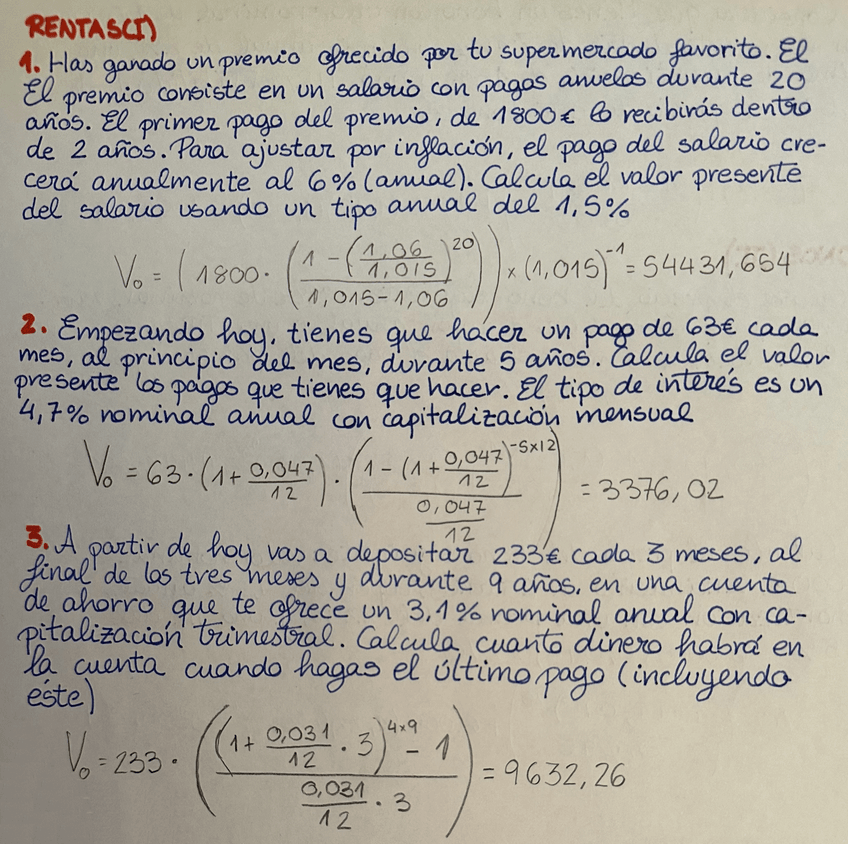 RENTAS(I)
1. Has ganado un premio ofrecido por tu supermercado favorito. El
El premio consiste en un salario con pagos anuelos durante 20
años. El primer pago del premio, de 1800€ lo recibirás dentro
de 2 años. Para ajustar por inflación, el pago del salario cre-
cerá anualmente al 6% (anual). Calcula el valor presente
del salario usando un tipo anual del 1,5%
V₀ = (1800 · ((1 - (1,06/1,015)^20)/(1,015-1,06))) × (1,015)^-1 = 54431,654
2. Empezando hoy, tienes que hacer un pago de 63€ cada
mes, al principio del mes, durante 5 años. Calcula el valor
presente los pagos que tienes que hacer. El tipo de interés es un
4,7% nominal anual con capitalización mensual
V₀ = 63 · (1 + 0,047/12) · ((1 - (1 + 0,047/12)^-5×12)/(0,047/12)) = 3376,02
3. A partir de hoy vas a depositar 233€ cada 3 meses, al
final de los tres meses y durante 9 años, en una cuenta
de ahorro que te ofrece un 3,1% nominal anual con ca-
pitalización trimestral. Calcula cuanto dinero habrá en
la cuenta cuando hagas el último pago (incluyendo
éste)
V₀ = 233 · (((1 + 0,031/12 · 3)^4×9 - 1)/(0,031/12 · 3)) = 9632,26